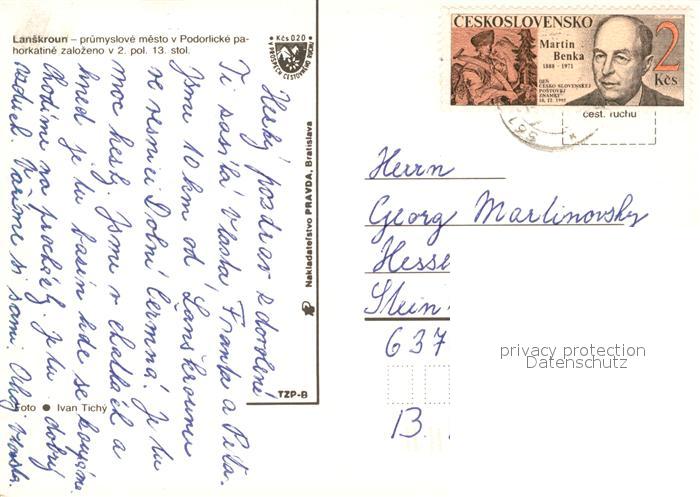 Lanškroun – průmyslové město v Podorlické pa-
horkatině založeno v 2. pol. 13. stol.
Kčs 0 20
V PROSPĚCH CESTOVNÍHO RUCHU
ČESKOSLOVENSKO
Martin
Benka
1888 - 1971
2
Kčs
DEŇ
ČESKO SLOVENSKEJ
POŠTOVEJ
ZNÁMKY
18. 12. 1991
561
cest. ruchu
Hezký pozdrav z dovolené
Ti zasílá Vlasta, Franta a Péťa.
Jsme 10 km od Lanškrounu
ve vesnici Dolní Čermná. Je tu
moc hezky. Jsme v chatkách a
hned je tu bazén kde se koupáme.
Chodíme na procházky. Je tu dobrý
vzduch. Vaříme si sami. Ahoj Vlasta.
Nakladatelství PRAVDA, Bratislava
TZP-B
Foto ● Ivan Tichý
Herrn
Georg Martinovsky
Hesse
Stein
637
B.
privacy protection
Datenschutz